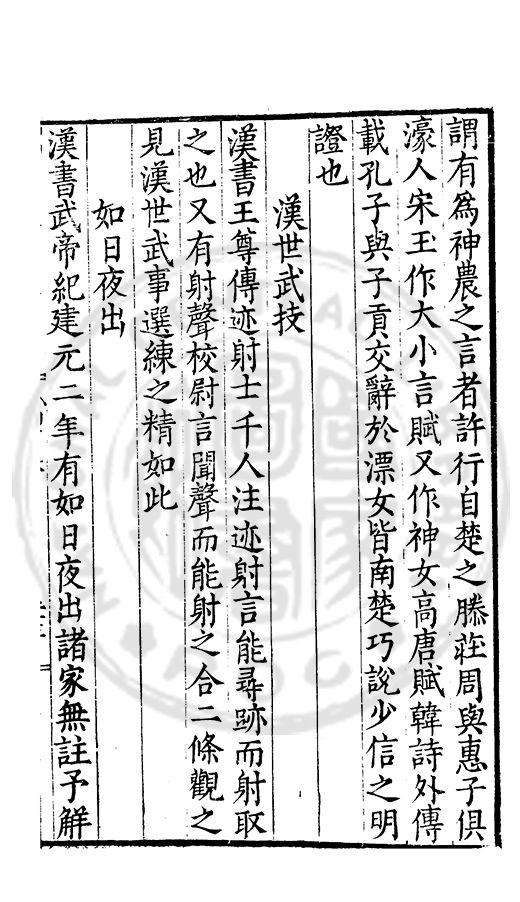 謂有為神農之言者許行自楚之滕莊周與惠子俱
濠人宋玉作大小言賦又作神女高唐賦韓詩外傳
載孔子與子貢交辭於漂女皆南楚巧說少信之明
證也
漢世武技
漢書王尊傳迹射士千人注迹射言能尋跡而射取
之也又有射聲校尉言聞聲而能射之合二條觀之
見漢世武事選練之精如此
如日夜出
漢書武帝紀建元二年有如日夜出諸家無註予解